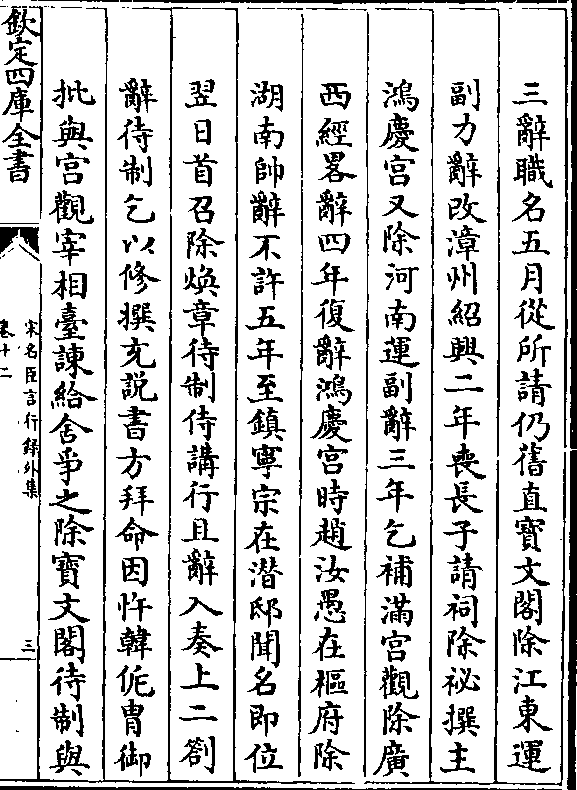 三辭職名五月從所請仍舊直寳文閣除江東運
副力辭改漳州紹興二年喪長子請祠除祕撰主
鴻慶宮又除河南運副辭三年乞補滿宮觀除廣
西經畧辭四年復辭鴻慶宮時趙汝愚在樞府除
湖南帥辭不許五年至鎮寧宗在潛邸聞名即位
翌日首召除煥章待制侍講行且辭入奏上二劄
辭待制乞以修撰充說書方拜命因忤韓侂胄御
批與宮觀宰相臺諫給舍爭之除寳文閣待制與
欽定四庫全書
宋名臣言行録外集
卷十二
三